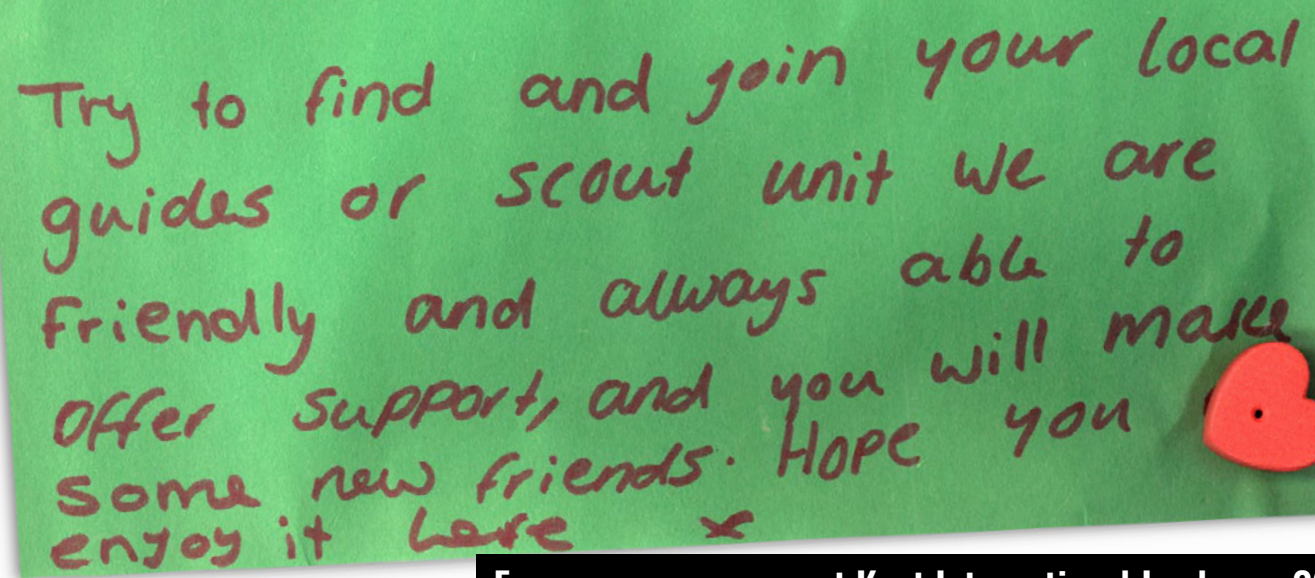 Try to find and join your local
guides or scout unit we are
friendly and always able to
offer support, and you will make
some new friends. Hope you
enjoy it here x